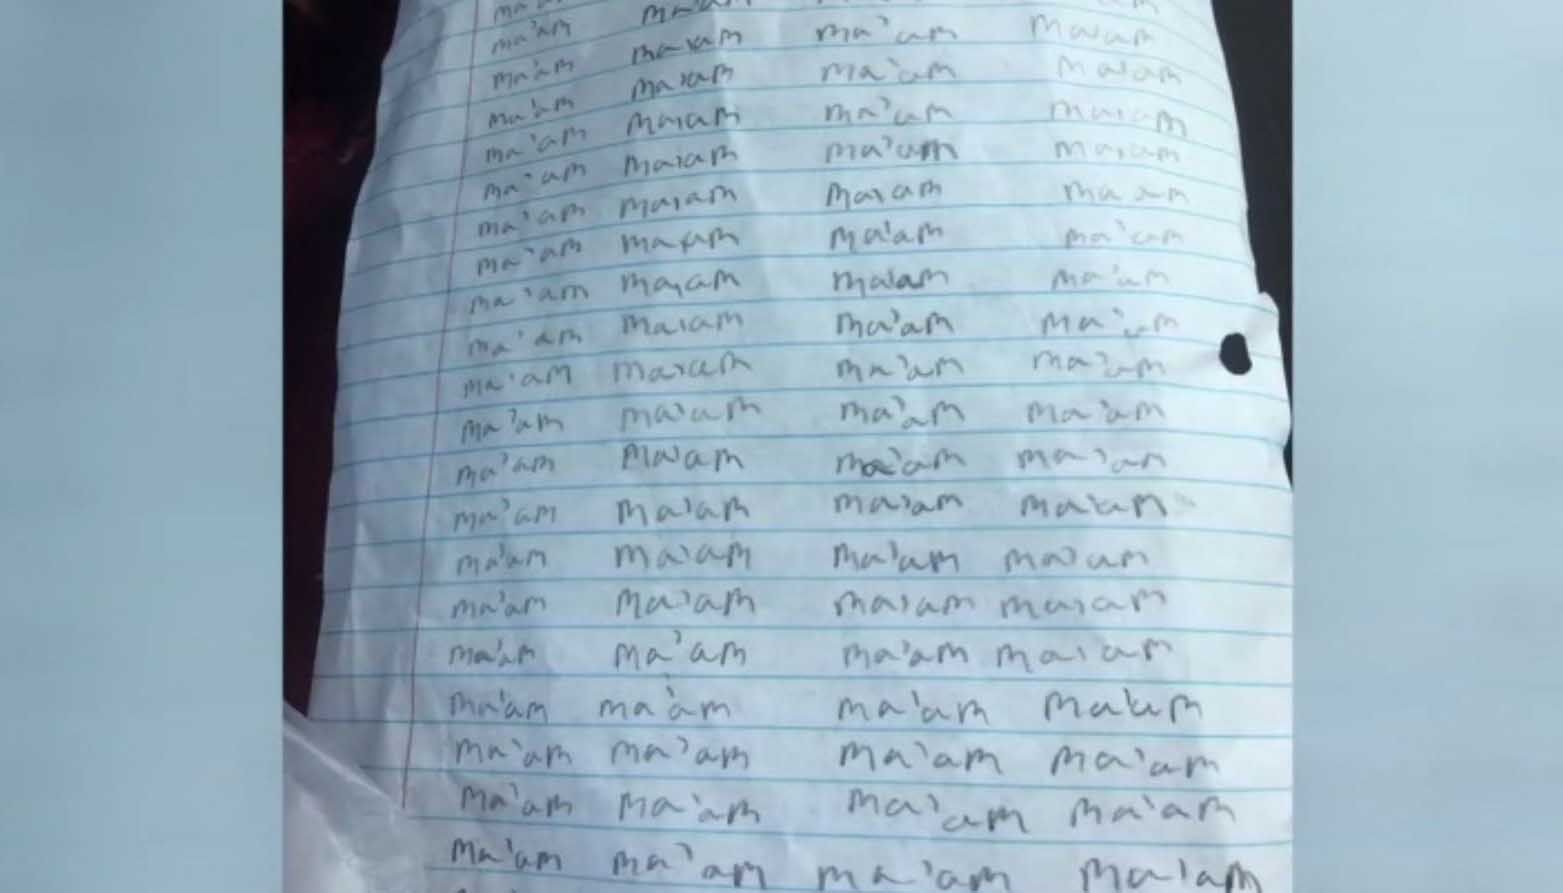 ma'am ma'am
ma'am ma'am ma'am ma'am
ma'am ma'am ma'am ma'am
ma'am ma'am ma'am ma'am
ma'am ma'am ma'am ma'am
ma'am ma'am ma'am ma'am
ma'am ma'am ma'am ma'am
ma'am ma'am ma'am ma'am
ma'am ma'am ma'am ma'am
ma'am ma'am ma'am ma'am
ma'am ma'am ma'am ma'am
ma'am ma'am ma'am ma'am
ma'am ma'am ma'am ma'am
ma'am ma'am ma'am ma'am
ma'am ma'am ma'am ma'am
ma'am ma'am ma'am ma'am
ma'am ma'am ma'am ma'am
ma'am ma'am ma'am ma'am
ma'am ma'am ma'am ma'am
ma'am ma'am ma'am ma'am